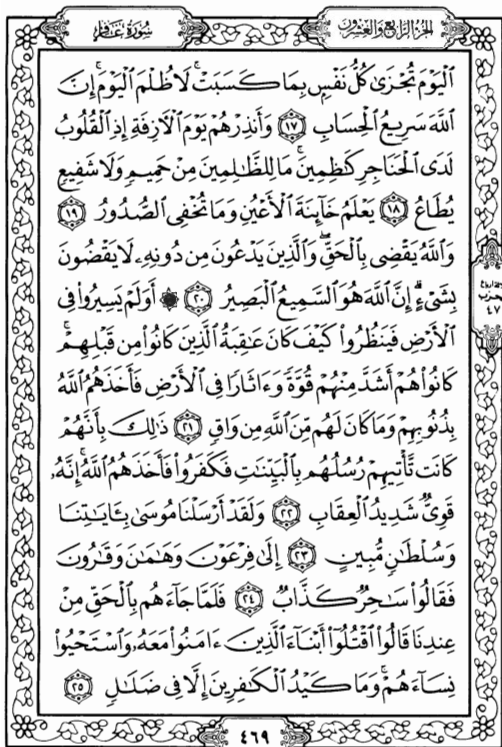 سُورَةُ غَافِر
الجُزْءُ الرَّابِعُ وَالعِشْرُونَ
ٱلْيَوْمَ تُجْزَىٰ كُلُّ نَفْسٍۭ بِمَا كَسَبَتْ ۚ لَا ظُلْمَ ٱلْيَوْمَ ۚ إِنَّ
ٱللَّهَ سَرِيعُ ٱلْحِسَابِ ١٧ وَأَنذِرْهُمْ يَوْمَ ٱلْـَٔازِفَةِ إِذِ ٱلْقُلُوبُ
لَدَى ٱلْحَنَاجِرِ كَـٰظِمِينَ ۚ مَا لِلظَّـٰلِمِينَ مِنْ حَمِيمٍ وَلَا شَفِيعٍ
يُطَاعُ ١٨ يَعْلَمُ خَآئِنَةَ ٱلْأَعْيُنِ وَمَا تُخْفِى ٱلصُّدُورُ ١٩
وَٱللَّهُ يَقْضِى بِٱلْحَقِّ ۖ وَٱلَّذِينَ يَدْعُونَ مِن دُونِهِۦ لَا يَقْضُونَ
بِشَىْءٍ ۗ إِنَّ ٱللَّهَ هُوَ ٱلسَّمِيعُ ٱلْبَصِيرُ ٢٠ ۞ أَوَلَمْ يَسِيرُوا۟ فِى
ٱلْأَرْضِ فَيَنظُرُوا۟ كَيْفَ كَانَ عَـٰقِبَةُ ٱلَّذِينَ كَانُوا۟ مِن قَبْلِهِمْ ۚ
كَانُوا۟ هُمْ أَشَدَّ مِنْهُمْ قُوَّةً وَءَاثَارًا فِى ٱلْأَرْضِ فَأَخَذَهُمُ ٱللَّهُ
بِذُنُوبِهِمْ وَمَا كَانَ لَهُم مِّنَ ٱللَّهِ مِن وَاقٍ ٢١ ذَٰلِكَ بِأَنَّهُمْ
كَانَت تَّأْتِيهِمْ رُسُلُهُم بِٱلْبَيِّنَـٰتِ فَكَفَرُوا۟ فَأَخَذَهُمُ ٱللَّهُ ۚ إِنَّهُۥ
قَوِىٌّ شَدِيدُ ٱلْعِقَابِ ٢٢ وَلَقَدْ أَرْسَلْنَا مُوسَىٰ بِـَٔايَـٰتِنَا
وَسُلْطَـٰنٍ مُّبِينٍ ٢٣ إِلَىٰ فِرْعَوْنَ وَهَـٰمَـٰنَ وَقَـٰرُونَ
فَقَالُوا۟ سَـٰحِرٌ كَذَّابٌ ٢٤ فَلَمَّا جَآءَهُم بِٱلْحَقِّ مِنْ
عِندِنَا قَالُوا۟ ٱقْتُلُوٓا۟ أَبْنَآءَ ٱلَّذِينَ ءَامَنُوا۟ مَعَهُۥ وَٱسْتَحْيُوا۟
نِسَآءَهُمْ ۚ وَمَا كَيْدُ ٱلْكَـٰفِرِينَ إِلَّا فِى ضَلَـٰلٍ ٢٥
٤٧
٤٦٩